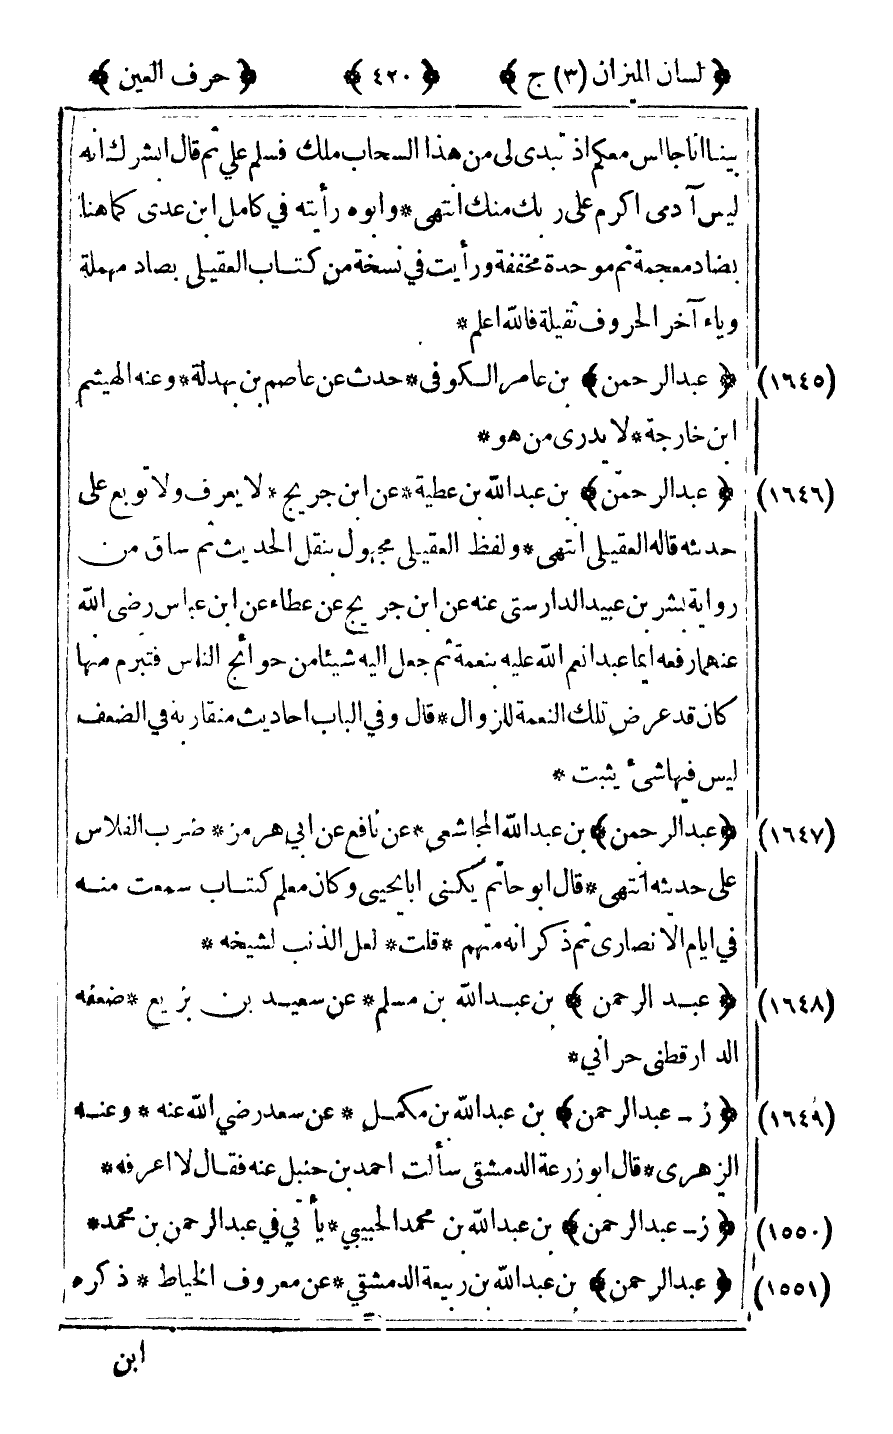 ﴿ لسان الميزان (٣) ج ﴾ ﴿ ٤٢٠ ﴾ ﴿ حرف العين ﴾
بينا انا جالس معكم اذ تبدى لى من هذا السحاب ملك فسلم علي ثم قال ابشرك انه
ليس آدمى اكرم على ربك منك انتهى * وابوه رأيته في كامل ابن عدى كما هنا
بضاد معجمة ثم موحدة مخففة ورأيت في نسخة من كتاب العقيلى بصاد مهملة
وياء آخر الحروف ثقيلة فالله اعلم *
(١٦٤٥) ﴿ عبدالرحمن ﴾ بن عامر الكوفى * حدث عن عاصم بن بهدلة * وعنه الهيثم
ابن خارجة * لا يدرى من هو *
(١٦٤٦) ﴿ عبدالرحمن ﴾ بن عبدالله بن عطية * عن ابن جريج * لا يعرف ولا توبع على
حديثه قاله العقيلى انتهى * ولفظ العقيلى مجهول بنقل الحديث ثم ساق من
رواية بشر بن عبيد الدارستى عنه عن ابن جريج عن عطاء عن ابن عباس رضى الله
عنهما رفعه ايما عبد انعم الله عليه بنعمة ثم جعل اليه شيئا من حوائج الناس فتبرم منها
كان قد عرض تلك النعمة للزوال * قال وفي الباب احاديث متقاربة في الضعف
ليس فيها شئ يثبت *
(١٦٤٧) ﴿ عبدالرحمن ﴾ بن عبدالله المجاشعى * عن نافع عن ابي هرمز * ضرب الفلاس
على حديثه انتهى * قال ابو حاتم يكنى ابا يحيى وكان معلم كتاب سمعت منه
في ايام الانصارى ثم ذكر انه متهم * قلت * لعل الذنب لشيخه *
(١٦٤٨) ﴿ عبد الرحمن ﴾ بن عبدالله بن مسلم * عن سعيد بن بزيع * ضعفه
الدارقطنى حراني *
(١٦٤٩) ﴿ ز - عبدالرحمن ﴾ بن عبدالله بن مكمل * عن سعد رضي الله عنه * وعنه
الزهرى * قال ابوزرعة الدمشقى سألت احمد بن حنبل عنه فقال لا اعرفه *
(١٥٥٠) ﴿ ز - عبدالرحمن ﴾ بن عبدالله بن محمد الحبيبي * يأتي في عبدالرحمن بن محمد *
(١٥٥١) ﴿ عبدالرحمن ﴾ بن عبدالله بن ربيعة الدمشقي * عن معروف الخياط * ذكره
ابن